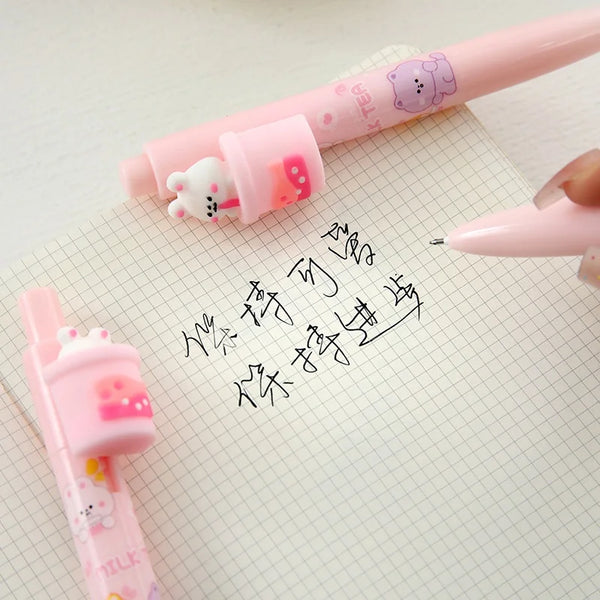 K TEA
保持可爱
保持进步
MILK